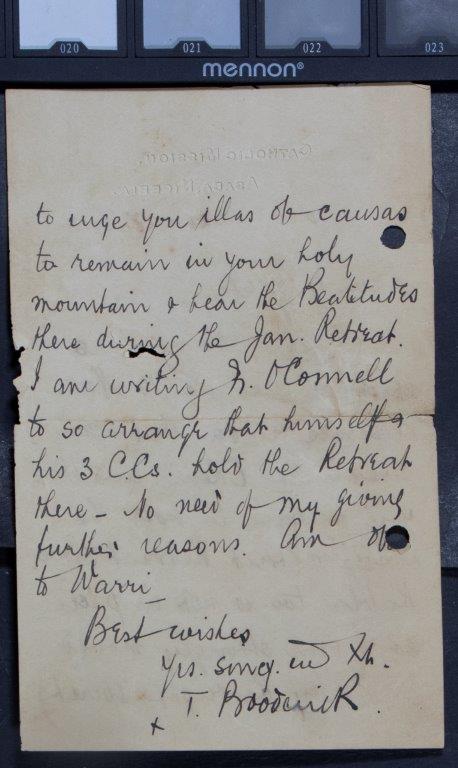 020 021 022 023
mennon®
CATHOLIC MISSION,
ASABA, NIGERIA.
to urge you illas ob causas
to remain in your holy
mountain & hear the Beatitudes
there during the Jan. Retreat.
I am writing Fr. O'Connell
to so arrange that himself &
his 3 C.Cs. hold the Retreat
there - No need of my giving
further reasons. Am off
to Warri -
Best wishes
Yrs. sincy. in Xt.
+ T. Broderick.